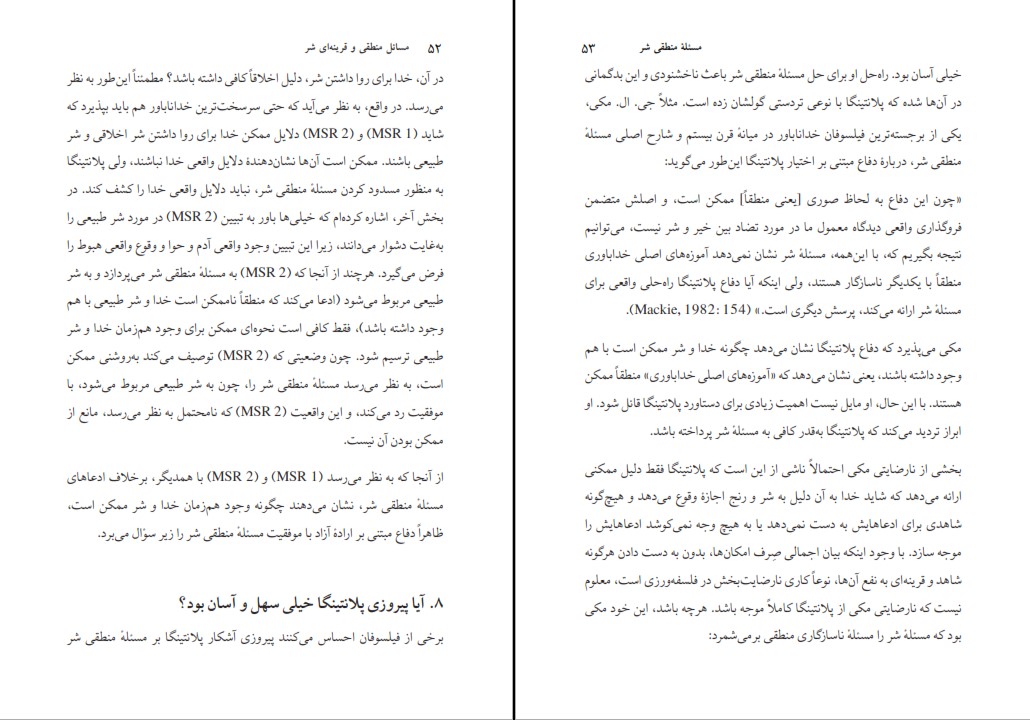 ۵۲ مسائل منطقی و قرینه‌ای شر
در آن، خدا برای روا داشتن شر، دلیل اخلاقاً کافی داشته باشد؟ مطمئناً این‌طور به نظر
می‌رسد. در واقع، به نظر می‌آید که حتی سرسخت‌ترین خداناباور هم باید بپذیرد که
شاید (MSR 1) و (MSR 2) دلایل ممکن خدا برای روا داشتن شر اخلاقی و شر
طبیعی باشند. ممکن است آن‌ها نشان‌دهندهٔ دلایل واقعی خدا نباشند، ولی پلانتینگا
به منظور مسدود کردن مسئلهٔ منطقی شر، نباید دلایل واقعی خدا را کشف کند. در
بخش آخر، اشاره کرده‌ام که خیلی‌ها باور به تبیین (MSR 2) در مورد شر طبیعی را
به‌غایت دشوار می‌دانند، زیرا این تبیین وجود واقعی آدم و حوا و وقوع واقعی هبوط را
فرض می‌گیرد. هرچند از آنجا که (MSR 2) به مسئلهٔ منطقی شر می‌پردازد و به شر
طبیعی مربوط می‌شود (ادعا می‌کند که منطقاً ناممکن است خدا و شر طبیعی با هم
وجود داشته باشد)، فقط کافی است نحوه‌ای ممکن برای وجود هم‌زمان خدا و شر
طبیعی ترسیم شود. چون وضعیتی که (MSR 2) توصیف می‌کند به‌روشنی ممکن
است، به نظر می‌رسد مسئلهٔ منطقی شر را، چون به شر طبیعی مربوط می‌شود، با
موفقیت رد می‌کند، و این واقعیت (MSR 2) که نامحتمل به نظر می‌رسد، مانع از
ممکن بودن آن نیست.
از آنجا که به نظر می‌رسد (MSR 1) و (MSR 2) با همدیگر، برخلاف ادعاهای
مسئلهٔ منطقی شر، نشان می‌دهند چگونه وجود هم‌زمان خدا و شر ممکن است،
ظاهراً دفاع مبتنی بر ارادهٔ آزاد با موفقیت مسئلهٔ منطقی شر را زیر سؤال می‌برد.
۸. آیا پیروزی پلانتینگا خیلی سهل و آسان بود؟
برخی از فیلسوفان احساس می‌کنند پیروزی آشکار پلانتینگا بر مسئلهٔ منطقی شر
مسئلهٔ منطقی شر ۵۳
خیلی آسان بود. راه‌حل او برای حل مسئلهٔ منطقی شر باعث ناخشنودی و این بدگمانی
در آن‌ها شده که پلانتینگا با نوعی تردستی گولشان زده است. مثلاً جی. ال. مکی،
یکی از برجسته‌ترین فیلسوفان خداناباور در میانهٔ قرن بیستم و شارح اصلی مسئلهٔ
منطقی شر، دربارهٔ دفاع مبتنی بر اختیار پلانتینگا این‌طور می‌گوید:
«چون این دفاع به لحاظ صوری [یعنی منطقاً] ممکن است، و اصلش متضمن
فروگذاری واقعی دیدگاه معمول ما در مورد تضاد بین خیر و شر نیست، می‌توانیم
نتیجه بگیریم که، با این‌همه، مسئلهٔ شر نشان نمی‌دهد آموزه‌های اصلی خداباوری
منطقاً با یکدیگر ناسازگار هستند، ولی اینکه آیا دفاع پلانتینگا راه‌حلی واقعی برای
مسئلهٔ شر ارائه می‌کند، پرسش دیگری است.» (Mackie, 1982: 154).
مکی می‌پذیرد که دفاع پلانتینگا نشان می‌دهد چگونه خدا و شر ممکن است با هم
وجود داشته باشند، یعنی نشان می‌دهد که «آموزه‌های اصلی خداباوری» منطقاً ممکن
هستند. با این حال، او مایل نیست اهمیت زیادی برای دستاورد پلانتینگا قائل شود. او
ابراز تردید می‌کند که پلانتینگا به‌قدر کافی به مسئلهٔ شر پرداخته باشد.
بخشی از نارضایتی مکی احتمالاً ناشی از این است که پلانتینگا فقط دلیل ممکنی
ارائه می‌دهد که شاید خدا به آن دلیل به شر و رنج اجازهٔ وقوع می‌دهد و هیچ‌گونه
شاهدی برای ادعاهایش به دست نمی‌دهد یا به هیچ وجه نمی‌کوشد ادعاهایش را
موجه سازد. با وجود اینکه بیان اجمالی صِرف امکان‌ها، بدون به دست دادن هرگونه
شاهد و قرینه‌ای به نفع آن‌ها، نوعاً کاری نارضایت‌بخش در فلسفه‌ورزی است، معلوم
نیست که نارضایتی مکی از پلانتینگا کاملاً موجه باشد. هرچه باشد، این خود مکی
بود که مسئلهٔ شر را مسئلهٔ ناسازگاری منطقی برمی‌شمرد: